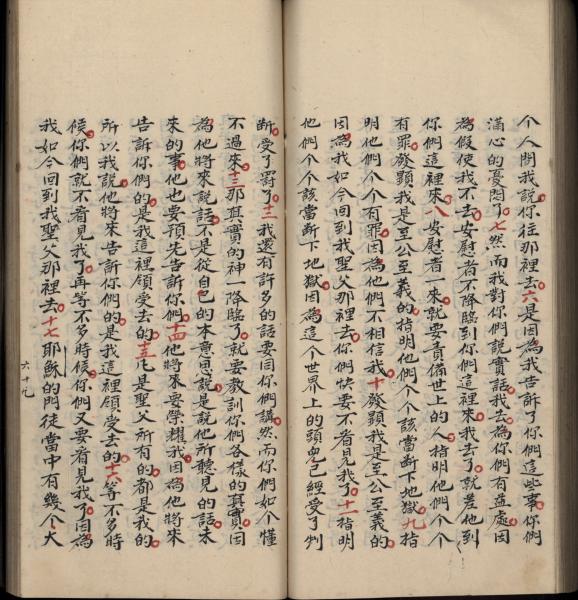 个人問我說你徃那裡去六是因為我告訴了你們這些事你們
滿心的憂悶了七然而我對你們說實話我去為你們有益處因
為假使我不去安慰者不降臨到你們這裡來我去了就差他到
你們這裡來八安慰者一來就要責備世上的人指明他們个个
有罪發顯我是至公至義的指明他們个个該當断下地獄九指
明他們个个有罪因為他們不相信我十發顯我是至公至義的
因為我如今回到我聖父那裡去你們快要不看見我了十一指明
他們个个該當断下地獄因為這个世界上的頭兒已經受了判
断受了罰了十二我還有許多的話要同你們講然而你們如今懂
不過來十三那真實的神一降臨了就要教訓你們各樣的真實因
為他將來說話不是從自己的本意思說是說他所聽見的話未
來的事他也要預先告訴你們十四他將來要榮耀我因為他將來
告訴你們的是我這裡領受去的十五凡是聖父所有的都是我的
所以我說他將來告訴你們的是我這裡領受去的十六等不多時
候你們就不看見我了再等不多時候你們又要看見我了因為
我如今回到我聖父那裡去十七耶穌的門徒當中有幾个大
六十九